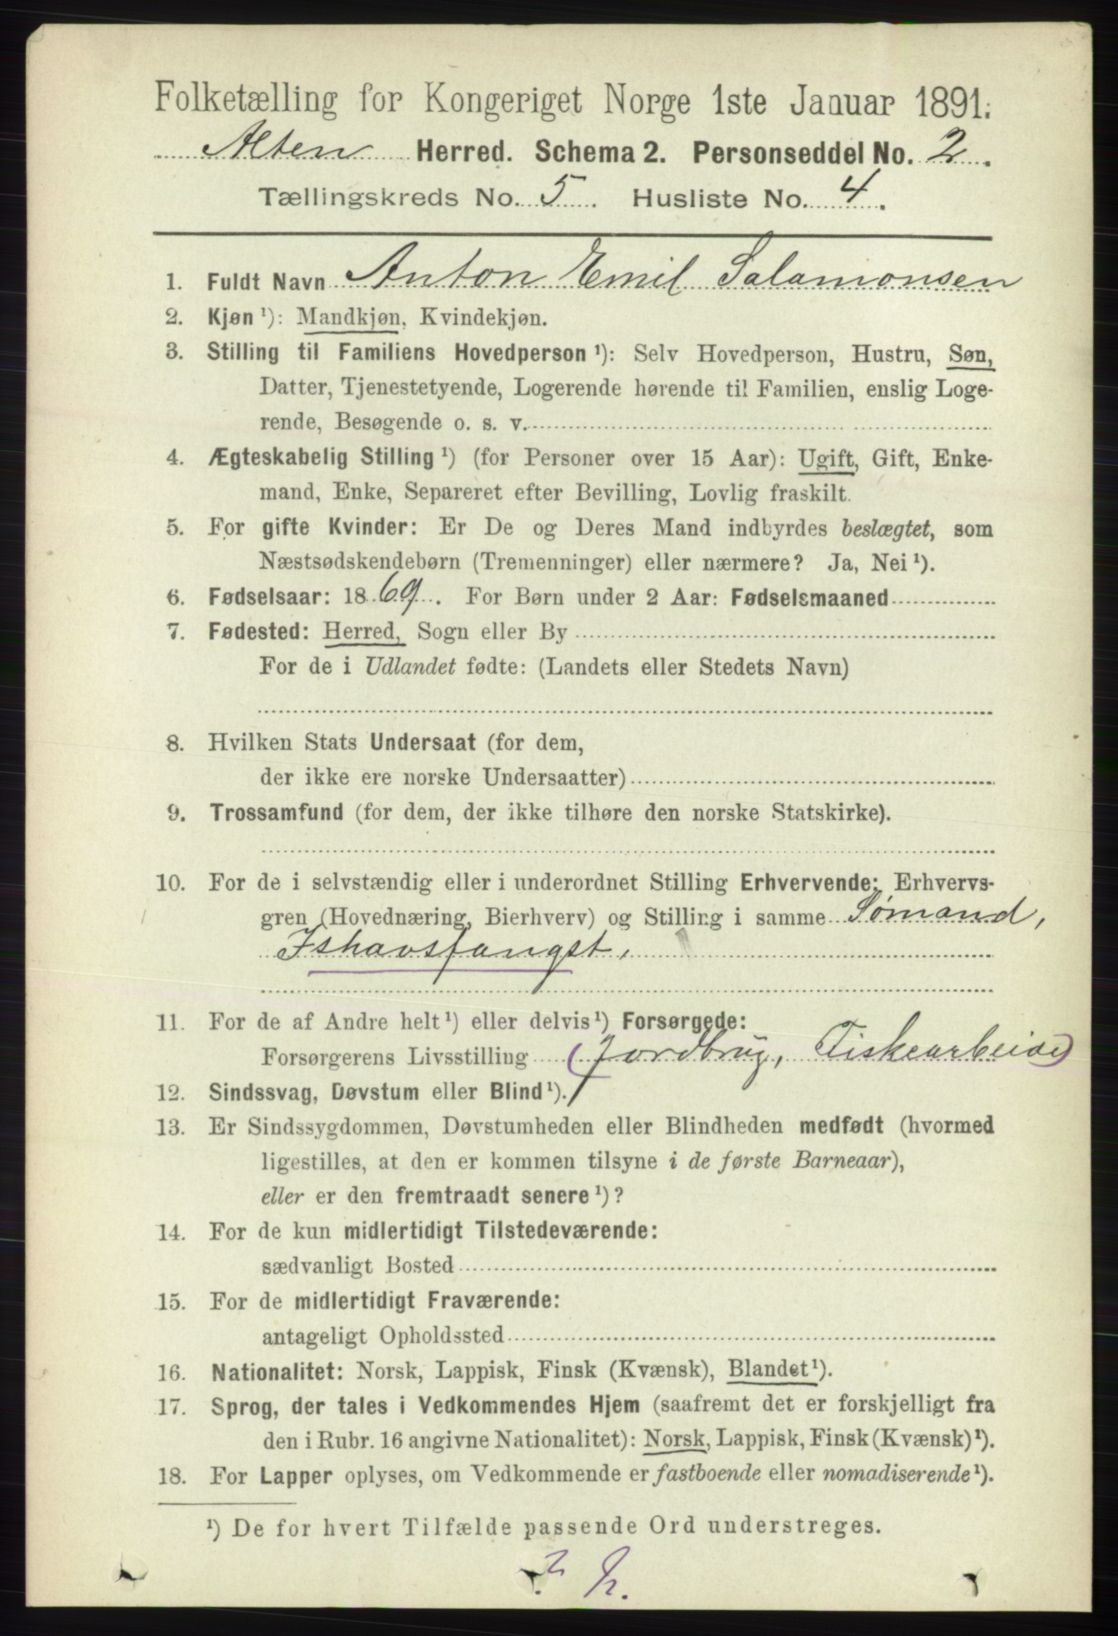 Folketælling for Kongeriget Norge 1ste Januar 1891.
Alten Herred. Schema 2. Personseddel No. 2.
Tællingskreds No. 5. Husliste No. 4.
1. Fuldt Navn Anton Emil Salamonsen
2. Kjøn ¹): Mandkjøn, Kvindekjøn.
3. Stilling til Familiens Hovedperson ¹): Selv Hovedperson, Hustru, Søn,
Datter, Tjenestetyende, Logerende hørende til Familien, enslig Loge-
rende, Besøgende o. s. v.
4. Ægteskabelig Stilling ¹) (for Personer over 15 Aar): Ugift, Gift, Enke-
mand, Enke, Separeret efter Bevilling, Lovlig fraskilt.
5. For gifte Kvinder: Er De og Deres Mand indbyrdes beslægtet, som
Næstsødskendebørn (Tremenninger) eller nærmere? Ja, Nei ¹).
6. Fødselsaar: 1869. For Børn under 2 Aar: Fødselsmaaned
7. Fødested: Herred, Sogn eller By
For de i Udlandet fødte: (Landets eller Stedets Navn)
8. Hvilken Stats Undersaat (for dem,
der ikke ere norske Undersaatter)
9. Trossamfund (for dem, der ikke tilhøre den norske Statskirke).
10. For de i selvstændig eller i underordnet Stilling Erhvervende: Erhvervs-
gren (Hovednæring, Bierhverv) og Stilling i samme Sømand,
Ishavsfangst,
11. For de af Andre helt ¹) eller delvis ¹) Forsørgede:
Forsørgerens Livsstilling (Jordbrug, Fiskearbeide)
12. Sindssvag, Døvstum eller Blind ¹).
13. Er Sindssygdommen, Døvstumheden eller Blindheden medfødt (hvormed
ligestilles, at den er kommen tilsyne i de første Barneaar),
eller er den fremtraadt senere ¹)?
14. For de kun midlertidigt Tilstedeværende:
sædvanligt Bosted
15. For de midlertidigt Fraværende:
antageligt Opholdssted
16. Nationalitet: Norsk, Lappisk, Finsk (Kvænsk), Blandet ¹).
17. Sprog, der tales i Vedkommendes Hjem (saafremt det er forskjelligt fra
den i Rubr. 16 angivne Nationalitet): Norsk, Lappisk, Finsk (Kvænsk) ¹).
18. For Lapper oplyses, om Vedkommende er fastboende eller nomadiserende ¹).
¹) De for hvert Tilfælde passende Ord understreges.